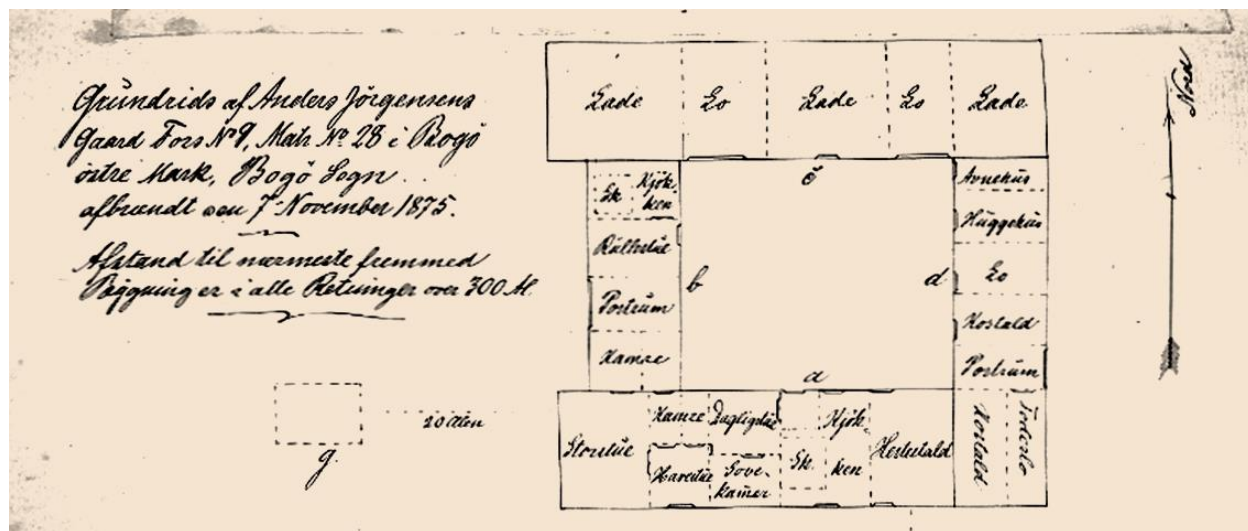 Grundrids af Anders Jörgensens
Gaard Fors Nº 9, Matr. Nº 28 i Bogö
östre Mark, Bogö Sogn
afbrændt den 7 November 1875.
Afstand til nærmeste fremmed
Bÿgninger i alle Retninger over 300 Al.
Nord
Lade Lo Lade Lo Lade
c
Sk Kjök-
ken
Rullestue
Portrum
Kamre
b
Avnehus
Huggehus
Lo
Kostald
Portrum
d
a
Storstue
Kamre Dagligstue
Havestue Sove-
kamer
Sk. Kjök-
ken
Hestestald
Kostald
Foderlo
20 Alen
g.